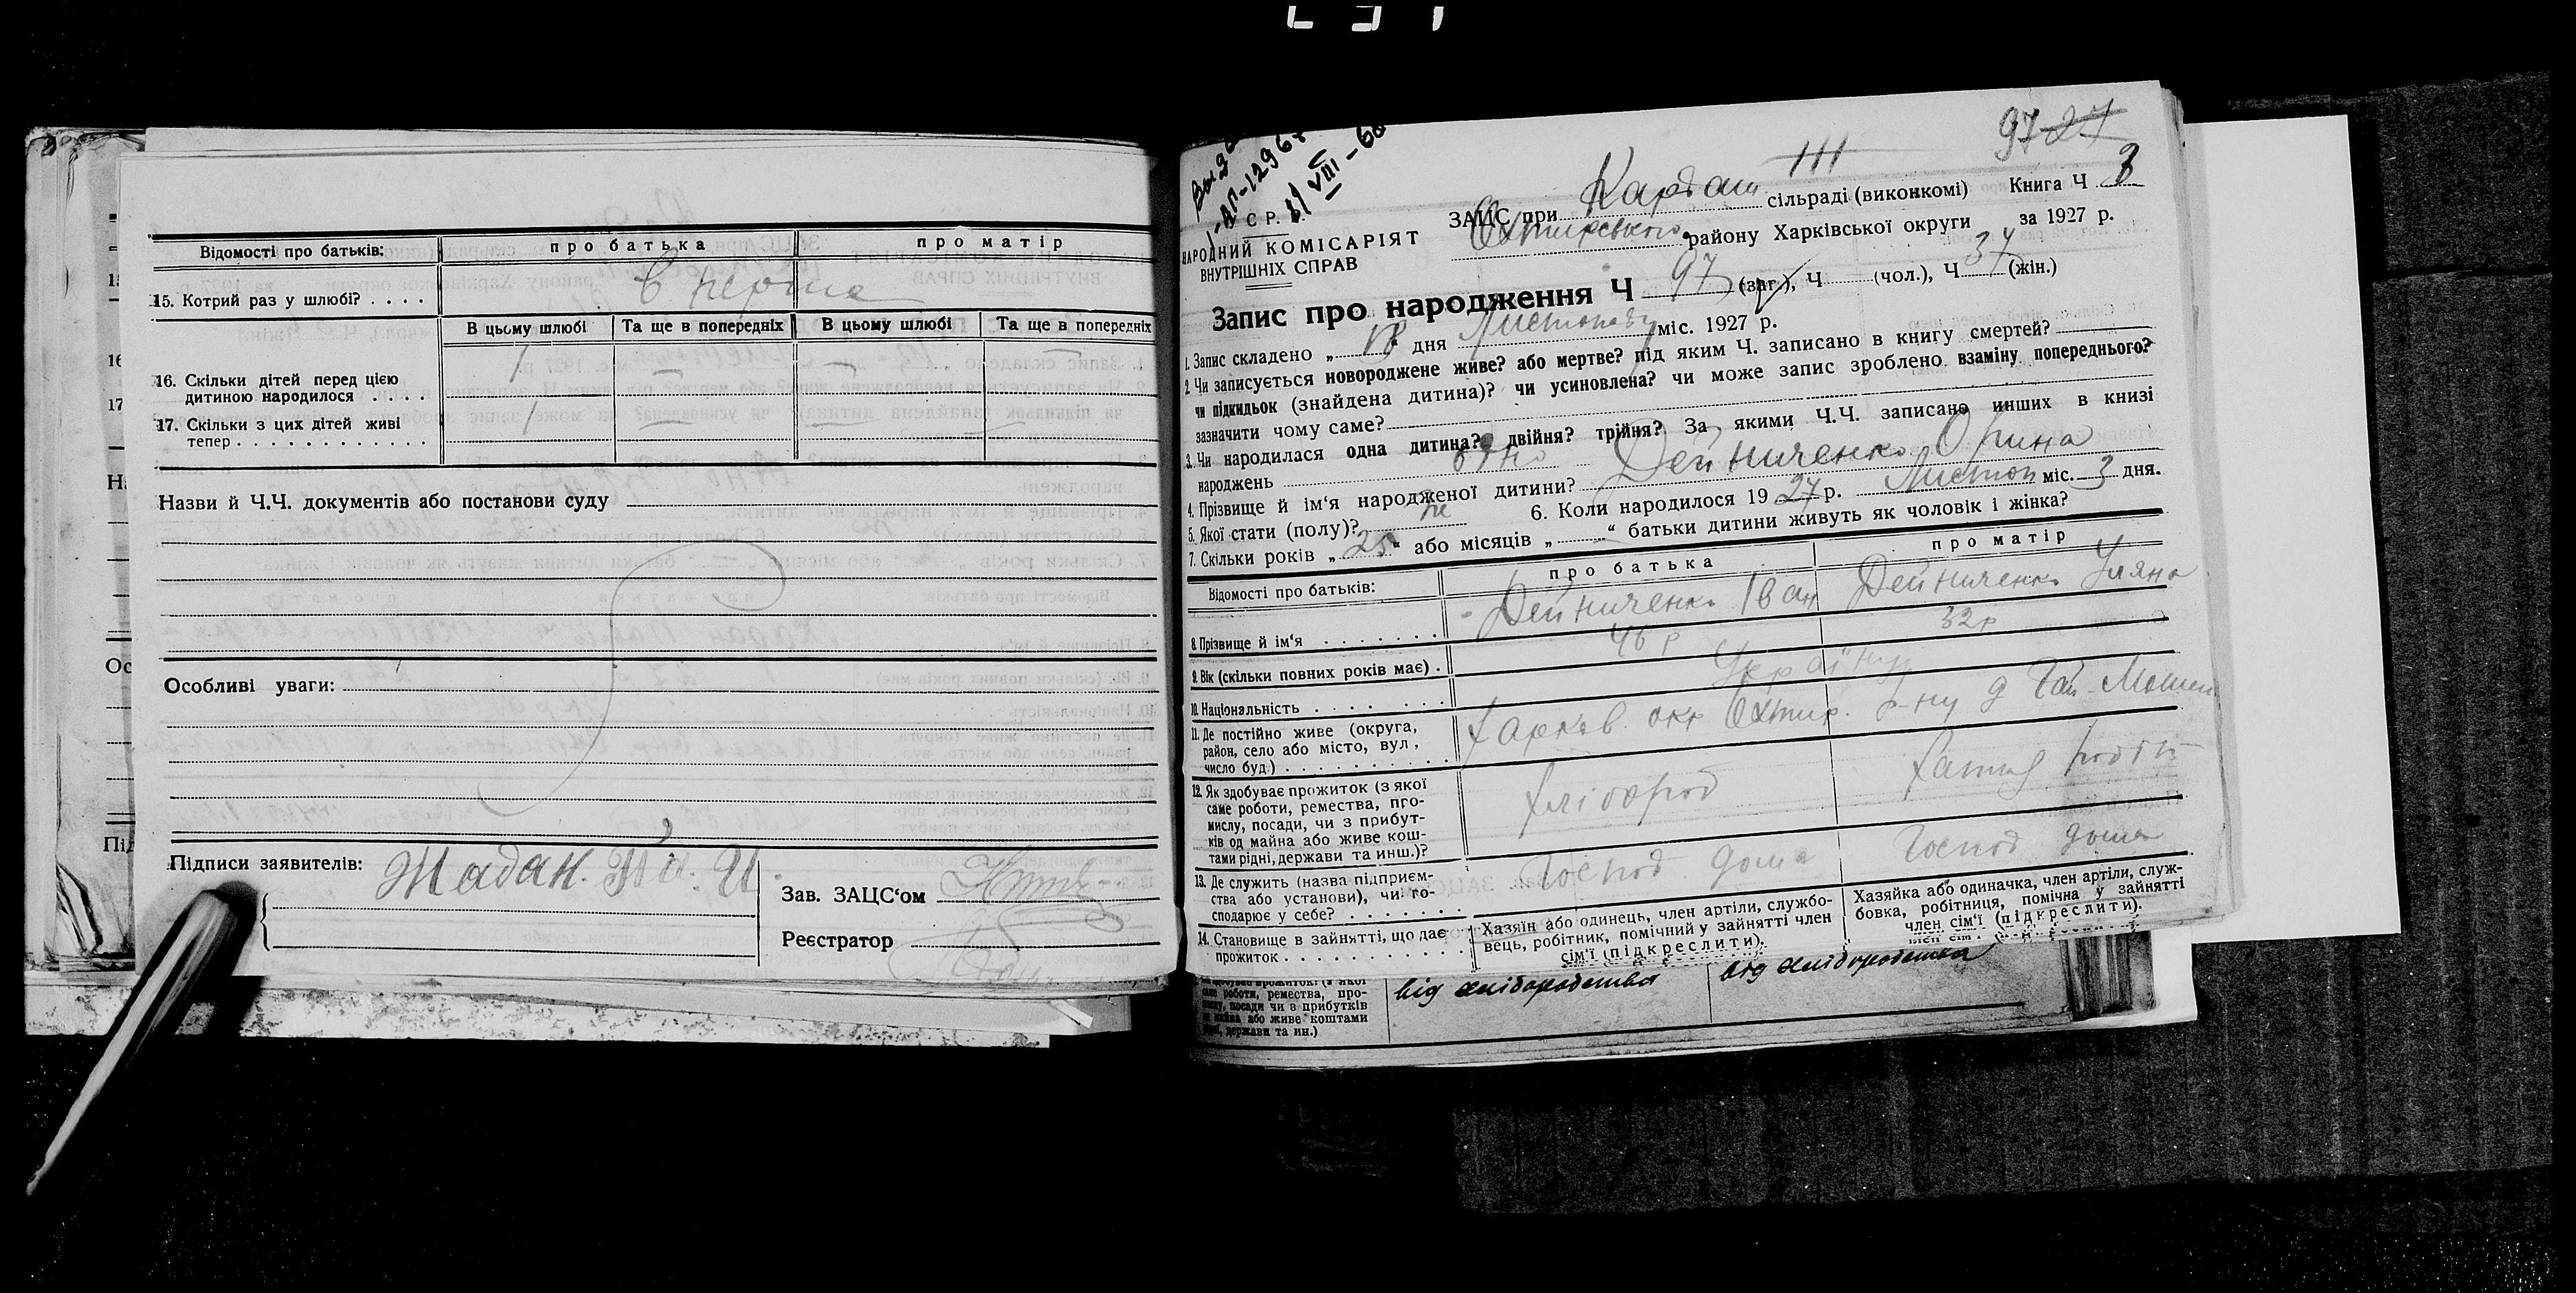 Відомості про батьків:
про батька
про матір
15. Котрий раз у шлюбі? . . . .
В перше
В цьому шлюбі
Та ще в попередніх
В цьому шлюбі
Та ще в попередніх
16. Скільки дітей перед цією
дитиною народилося . . . .
1 — — —
17. Скільки з цих дітей живі
тепер . . . . . . . . . . . .
1 — — —
Назви й Ч.Ч. документів або постанови суду
Особливі уваги:
Підписи заявителів:
Жадан.
Зав. ЗАЦС‘ом
Реєстратор
97 27
III
С Р.
НАРОДНИЙ КОМІСАРІЯТ
ВНУТРІШНІХ СПРАВ
VIII
ЗАЦС при Кардаш сільраді (виконкомі) Книга Ч 3
Охтирського району Харківської округи за 1927 р.
Запис про народження Ч 97 (заг.), Ч (чол.), Ч 34 (жін.)
1. Запис складено „ “ дня Листопаду міс. 1927 р.
2. Чи записується новороджене живе? або мертве? під яким Ч. записано в книгу смертей?
чи підкидьок (знайдена дитина)? чи усиновлена? чи може запис зроблено взаміну попереднього?
зазначити чому саме?
3. Чи народилася одна дитина? двійня? трійня? За якими Ч.Ч. записано инших в книзі
народжень одно
4. Прізвище й ім‘я народженої дитини? Дейниченко Орина
5. Якої стати (полу)? 6. Коли народилося 1927 р. Листоп міс. 3 дня.
7. Скільки років „ 25 “ або місяців „ “ батьки дитини живуть як чоловік і жінка?
Відомості про батьків:
про батька
про матір
8. Прізвище й ім‘я . . . . . . .
Дейниченко Іван
Дейниченко Уляна
9. Вік (скільки повних років має) .
46 р
32 р
10. Національність . . . . . . .
Українці
11. Де постійно живе (округа,
район, село або місто, вул.,
число буд.) . . . . . . . . . . .
Харків. окр Охтир. р-ну
12. Як здобуває прожиток (з якої
саме роботи, ремества, про-
мислу, посади, чи з прибут-
ків од майна або живе кош-
тами рідні, держави та инш.)?
Хлібороб
13. Де служить (назва підприєм-
ства або установи), чи го-
сподарює у себе? . . . . . . .
Господ дома
Господ дома
14. Становище в зайнятті, що дає
прожиток . . . . . . . . . . .
Хазяїн або одинець, член артіли, службо-
вець, робітник, помічний у зайнятті член
сім‘ї (підкреслити).
Хазяйка або одиначка, член артіли, служ-
бовка, робітниця, помічна у зайнятті
член сім‘ї (підкреслити).
роботи, ремества, про-
посади чи з прибутків
або живе коштами
держави та ин.)
від хліборобства
від хліборобства